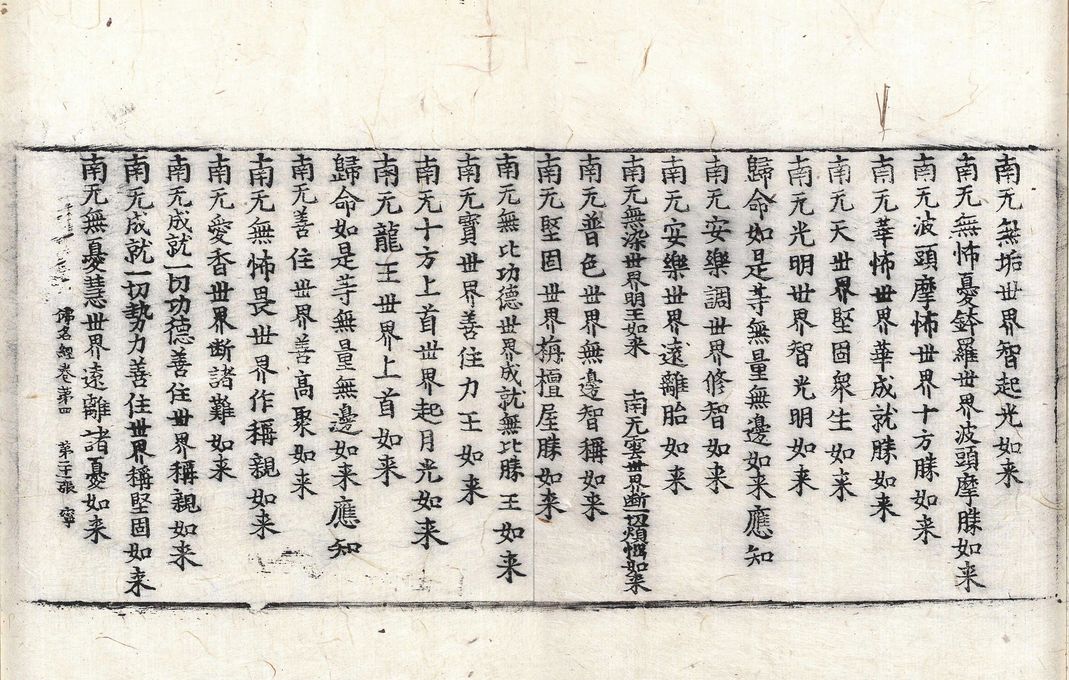 南无無垢世界智起光如来
南无無怖憂鉢羅世界波頭摩勝如来
南无波頭摩怖世界十方勝如来
南无華怖世界華成就勝如来
南无天世界堅固衆生如来
南无光明世界智光明如来
歸命如是等無量無邊如来應知
南无安樂調世界修智如来
南无安樂世界遠離胎如来
南无無染世界明王如来 南无雲世界断一切煩惱如来
南无普色世界無邊智稱如来
南无堅固世界栴檀屋勝如来
南无無比功德世界成就無比勝王如来
南无寶世界善住力王如来
南无十方上首世界起月光如来
南无龍王世界上首如来
歸命如是等無量無邊如来應知
南无善住世界善高聚如来
南无無怖畏世界作稱親如来
南无愛香世界断諸難如来
南无成就一切功德善住世界稱親如来
南无成就一切勢力善住世界稱堅固如来
南无無憂慧世界遠離諸憂如来
佛名經卷第四 第三張 寧